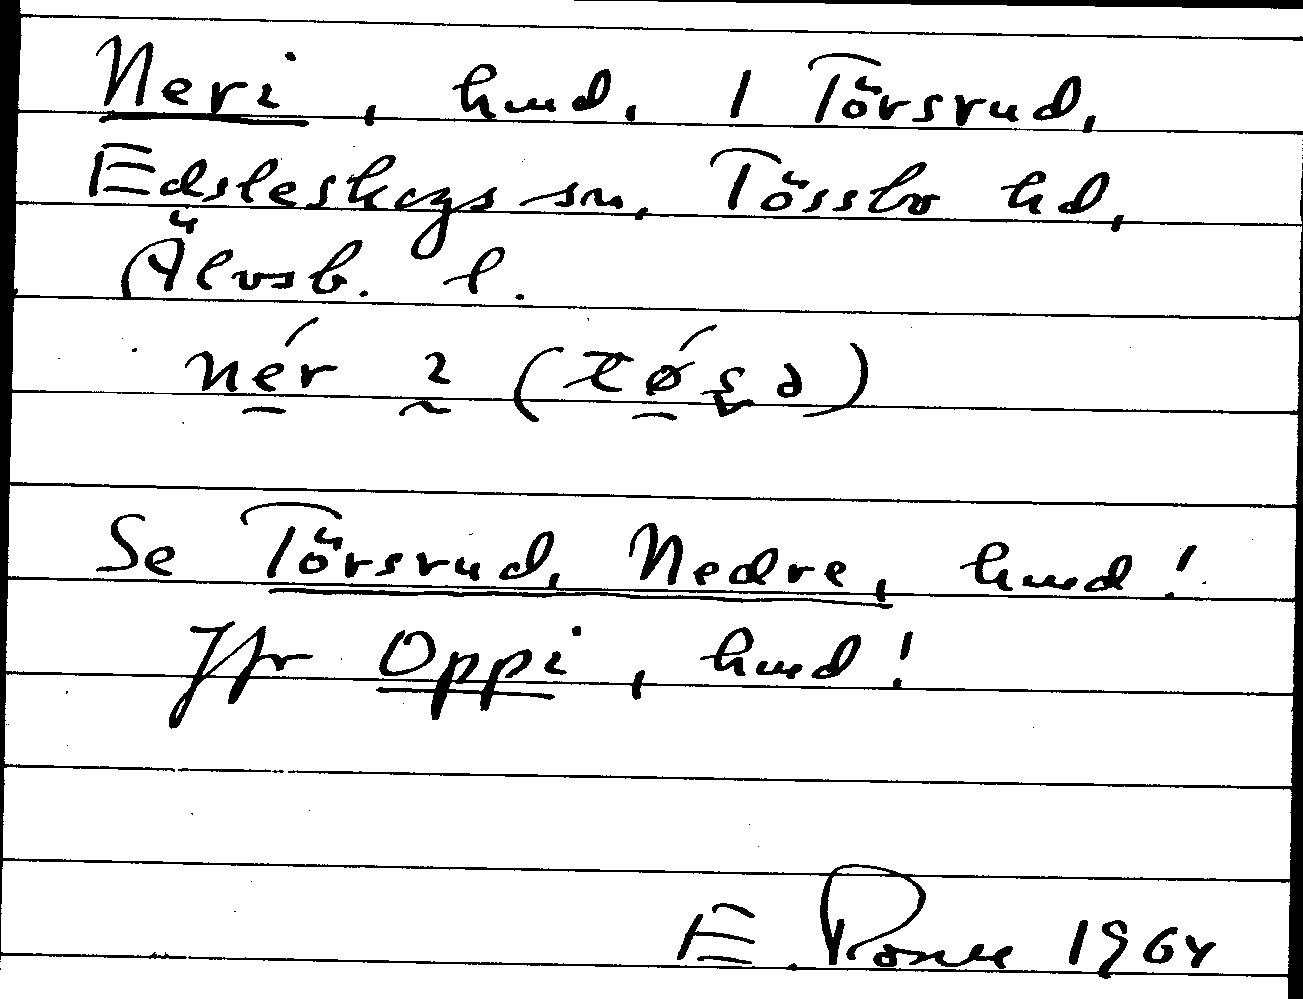 Neri, hmd, 1 Törsrud,
Edsleskogs sn, Tössbo hd,
Älvsb. l.
Se Törsrud, Nedre, hmd!
Jfr Oppi, hmd!
E. 1964